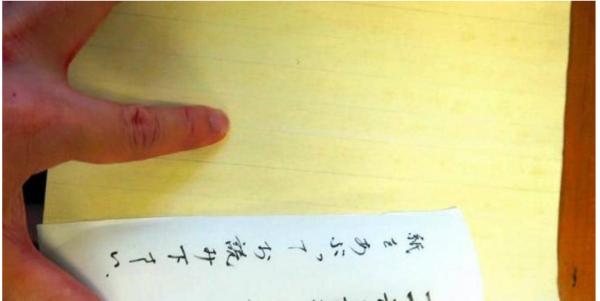 紙をあぶってお読み下さい